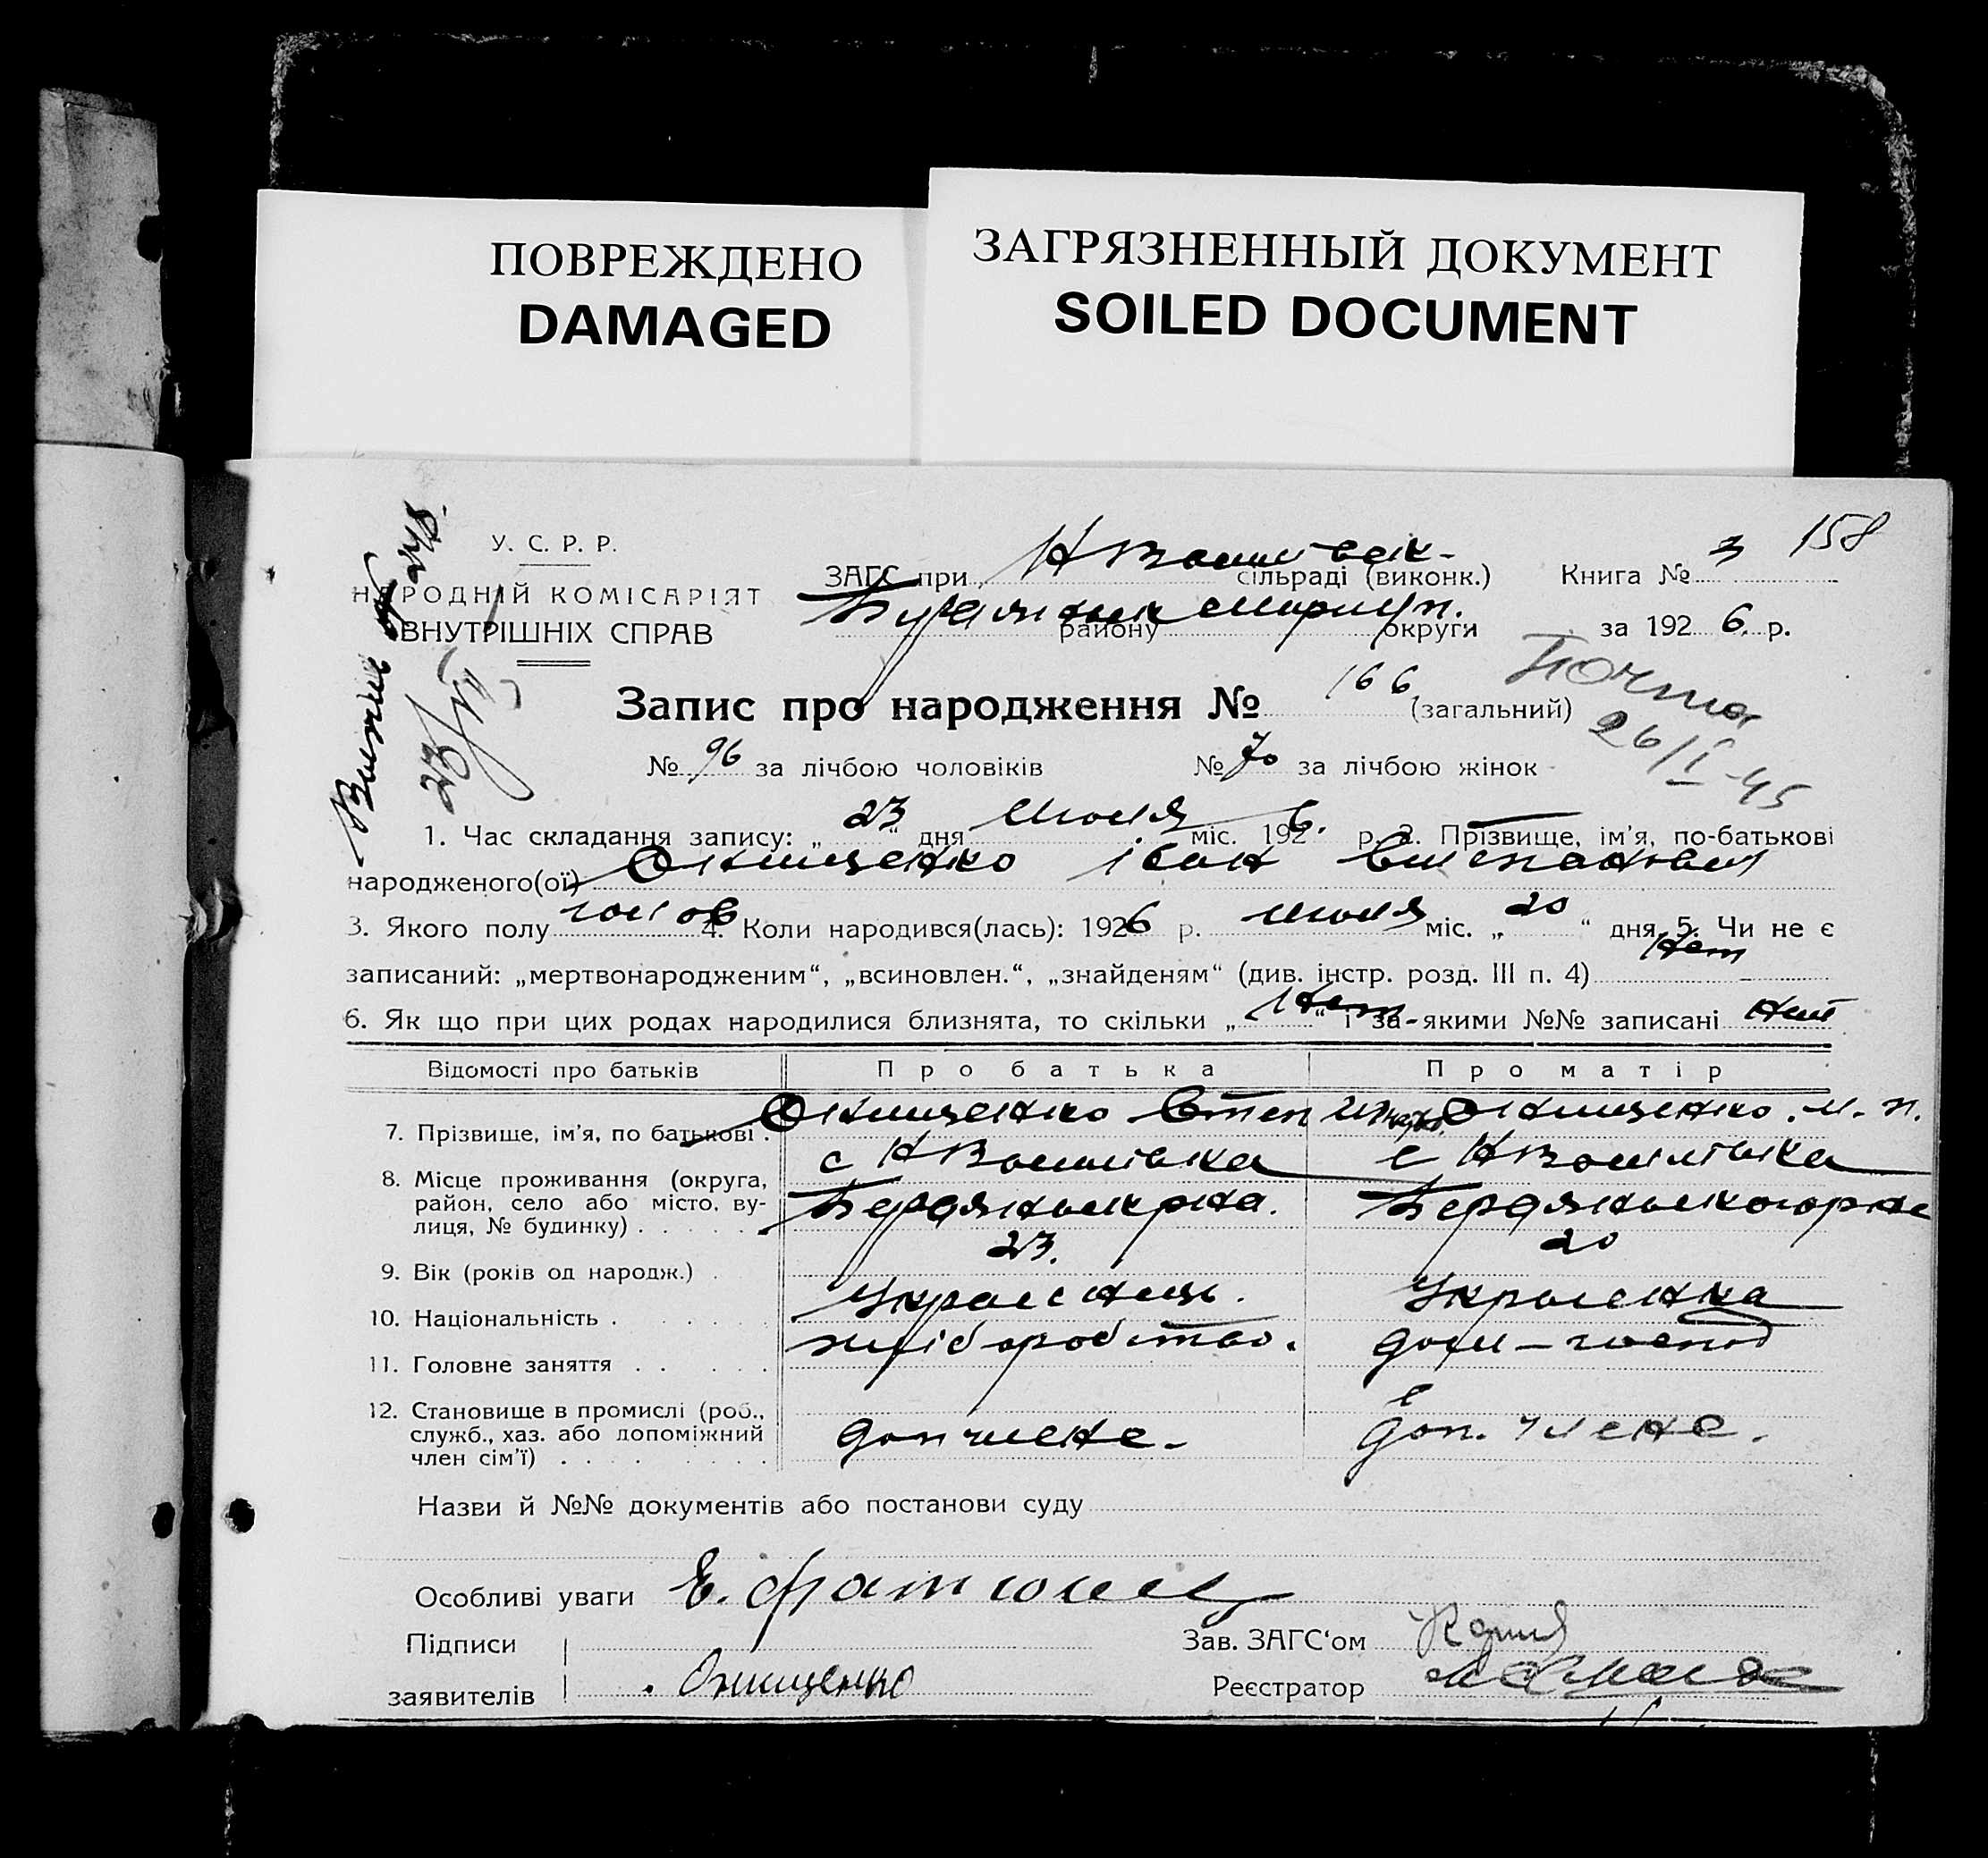 ПОВРЕЖДЕНО
DAMAGED
ЗАГРЯЗНЕННЫЙ ДОКУМЕНТ
SOILED DOCUMENT
158
У. С. Р. Р.
НАРОДНІЙ КОМІСАРІЯТ
ВНУТРІШНІХ СПРАВ
ЗАГС при сільраді (виконк.) Книга № 3
району округи за 1926 р.
Почта
26/I-45
Запис про народження № 166 (загальний)
№ 96 за лічбою чоловіків № 70 за лічбою жінок
1. Час складання запису: „23“ дня Июля міс. 1926. р. 2. Прізвище, ім'я, по-батькові
народженого(ої) Онищенко Іван
3. Якого полу 4. Коли народився(лась): 1926 р. Июля міс. „20“ дня 5. Чи не є
записаний: „мертвонародженим“, „всиновлен.“, „знайденям“ (див. інстр. розд. III п. 4) Нет
6. Як що при цих родах народилися близнята, то скільки „Нет“ і за якими №№ записані Нет
Відомості про батьків Про батька Про матір
7. Прізвище, ім'я, по батькові . Онищенко Степ Онищенко. М. П.
8. Місце проживання (округа, с НВасилівка с НВасилівка
район, село або місто, ву-
лиця, № будинку) . . . . .
9. Вік (років од народж.) . 23. 20
10. Національність . . . . . . Украінець. Украенка
11. Головне заняття . . . . . хліборобство.
12. Становище в промислі (роб.,
служб., хаз. або допоміжний доп члене. доп. члене.
член сім'ї) . . . . . . . .
Назви й №№ документів або постанови суду
Особливі уваги
Підписи Зав. ЗАГС‘ом
заявителів Онищенко Реєстратор